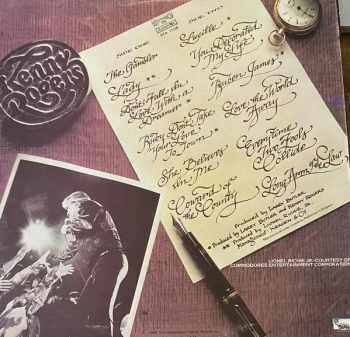 Kenny
Rogers
SIDE ONE
The Gambler
Lady *
Don't Fall in
Love With a
Dreamer **
Ruby Don't Take
Your Love
To Town
She Believes
in Me
Coward of
the County
SIDE TWO
Lucille
You Decorated
My Life
Reuben James
Love the World
Away
Every Time
Two Fools
Collide
Long Arm of the Law
Produced by Larry Butler
LIONEL RICHIE JR. COURTESY OF
COMMODORES ENTERTAINMENT CORPORATION